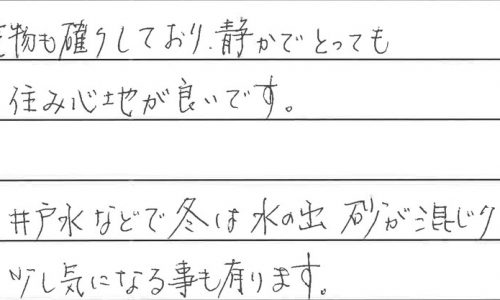 物も確りしており、静かでとっても
住み心地が良いです。
井戸水などで冬は水の出 砂が混じり
少し気になる事も有ります。